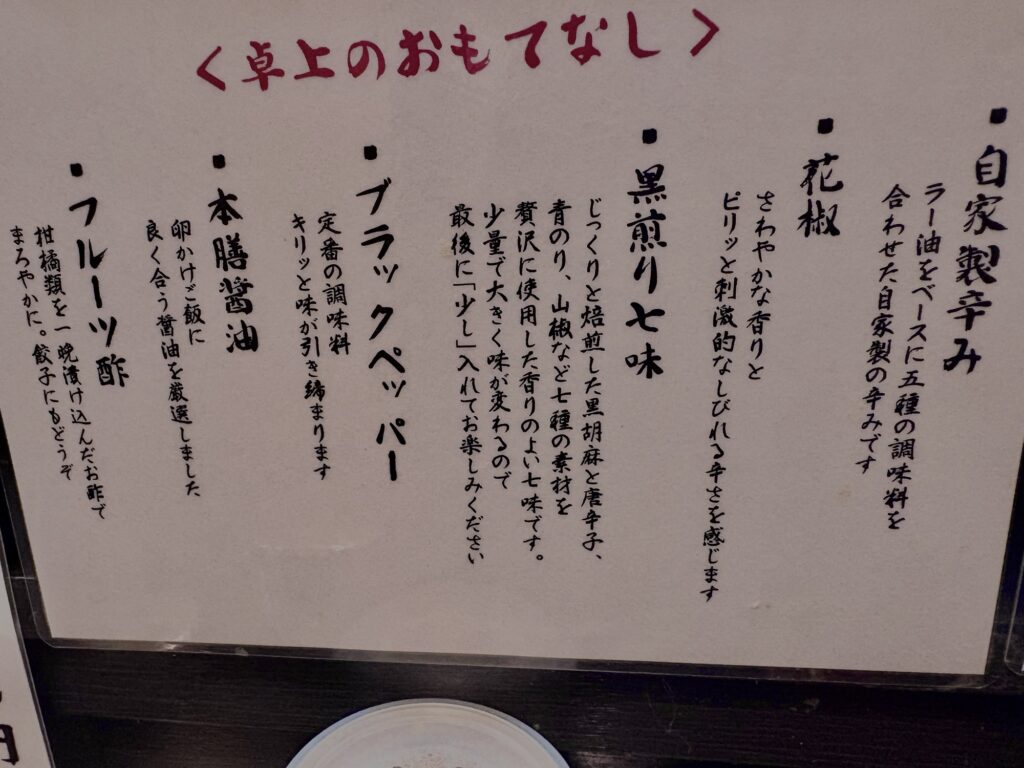 <卓上のおもてなし>
▪自家製辛み
ラー油をベースに五種の調味料を
合わせた自家製の辛みです
▪花椒
さわやかな香りと
ピリッと刺激的なしびれる辛さを感じます
▪黒煎り七味
じっくりと焙煎した黒胡麻と唐辛子、
青のり、山椒など七種の素材を
贅沢に使用した香りのよい七味です。
少量で大きく味が変わるので
最後に「少し」入れてお楽しみください
▪ブラックペッパー
定番の調味料
キリッと味が引き締まります
▪本膳醤油
卵かけご飯に
良く合う醤油を厳選しました
▪フルーツ酢
柑橘類を一晩漬け込んだお酢で
まろやかに。餃子にもどうぞ
円